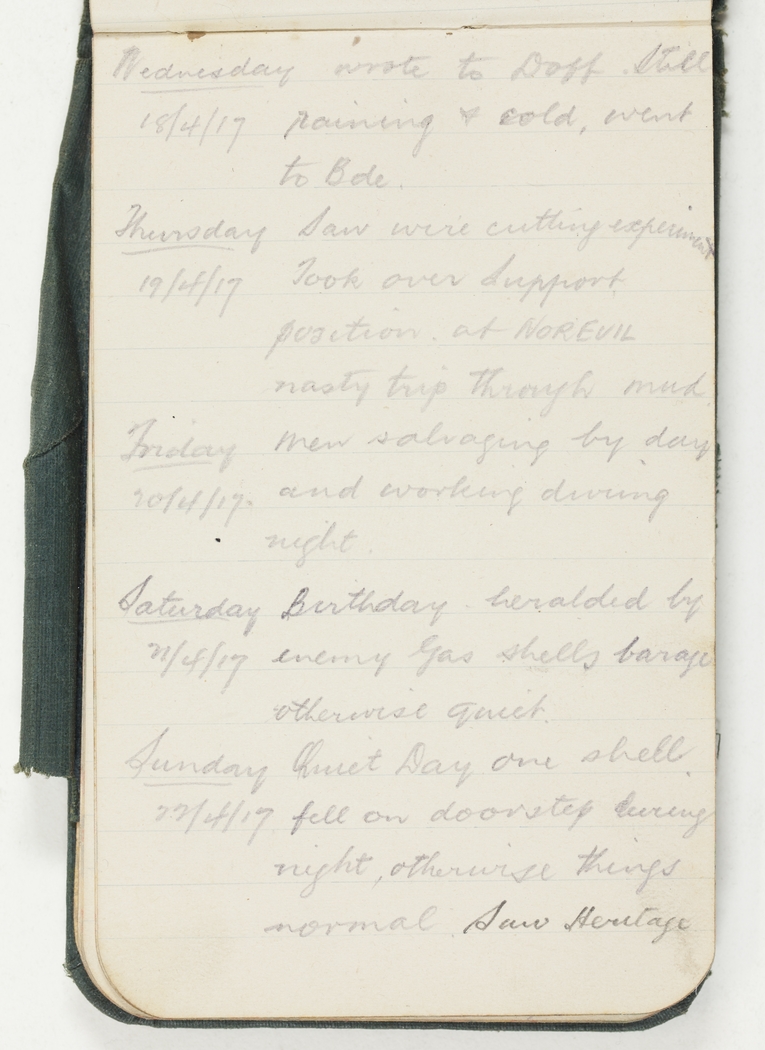 Wednesday wrote to Doff. Still
18/4/17 raining & cold, went
to Bde.
Thursday Saw wire cutting experiment
19/4/17 Took over Support
position. at NOREUIL
nasty trip through mud.
Friday Men salvaging by day
20/4/17. and working during
night.
Saturday Birthday heralded by
21/4/17 enemy Gas shells barage
otherwise quiet.
Sunday Quiet Day one shell
22/4/17 fell on doorstep during
night, otherwise things
normal Saw Heritage